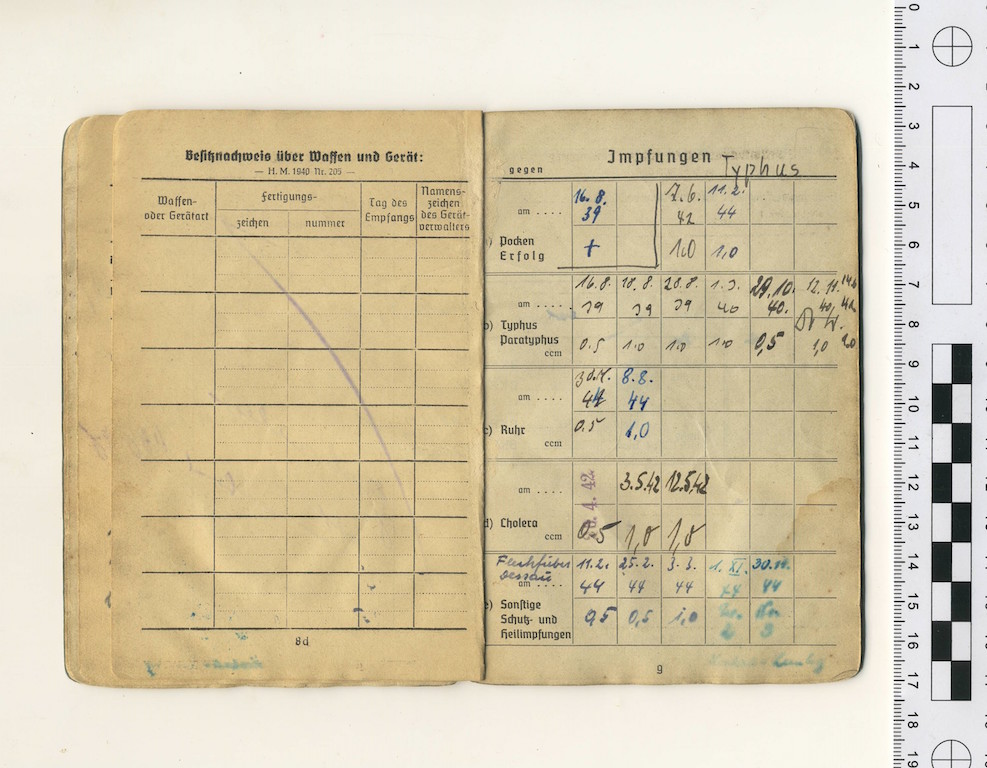 Besitznachweis über Waffen und Gerät:
— H. M. 1940 Nr. 205 —
Waffen-
oder Gerätart
Fertigungs-
zeichen
nummer
Tag des
Empfangs
Namens-
zeichen
des Gerät-
verwalters
8d
Impfungen
gegen
Typhus
am ....
16. 8. 39
7. 6. 42
11. 2. 44
Pocken
Erfolg
+
1,0
1,0
am ....
16.8. 39
18.8. 39
28.8. 39
1.3. 40
29.10. 40.
12. 11. 40,
b) Typhus
Paratyphus
ccm
0.5
1.0
1.0
1.0
0,5
1,0
am ....
44
8.8. 44
c) Ruhr
ccm
0.5
1,0
am ....
4. 42
3.5.42
12.5.42
d) Cholera
ccm
0,5
1,0
1,0
Fleckfieber
Dessau
am ....
11.2. 44
25.2. 44
3.3. 44
1. XI. 44
44
e) Sonstige
Schutz- und
Heilimpfungen
0,5
0,5
1,0
2
3
9
0
1
2
3
4
5
6
7
8
9
10
11
12
13
14
15
16
17
18
19